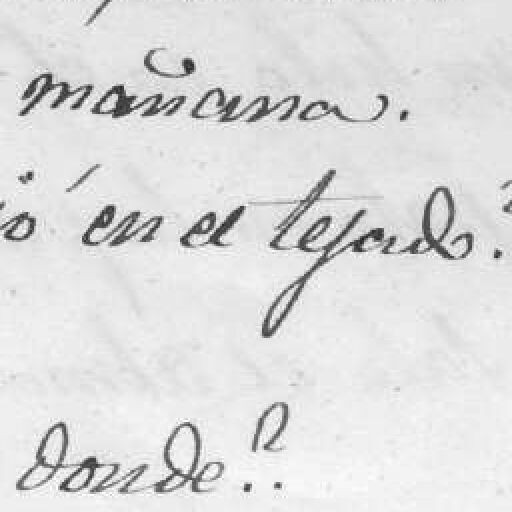 mañana.
ió en el tejado?
donde?.